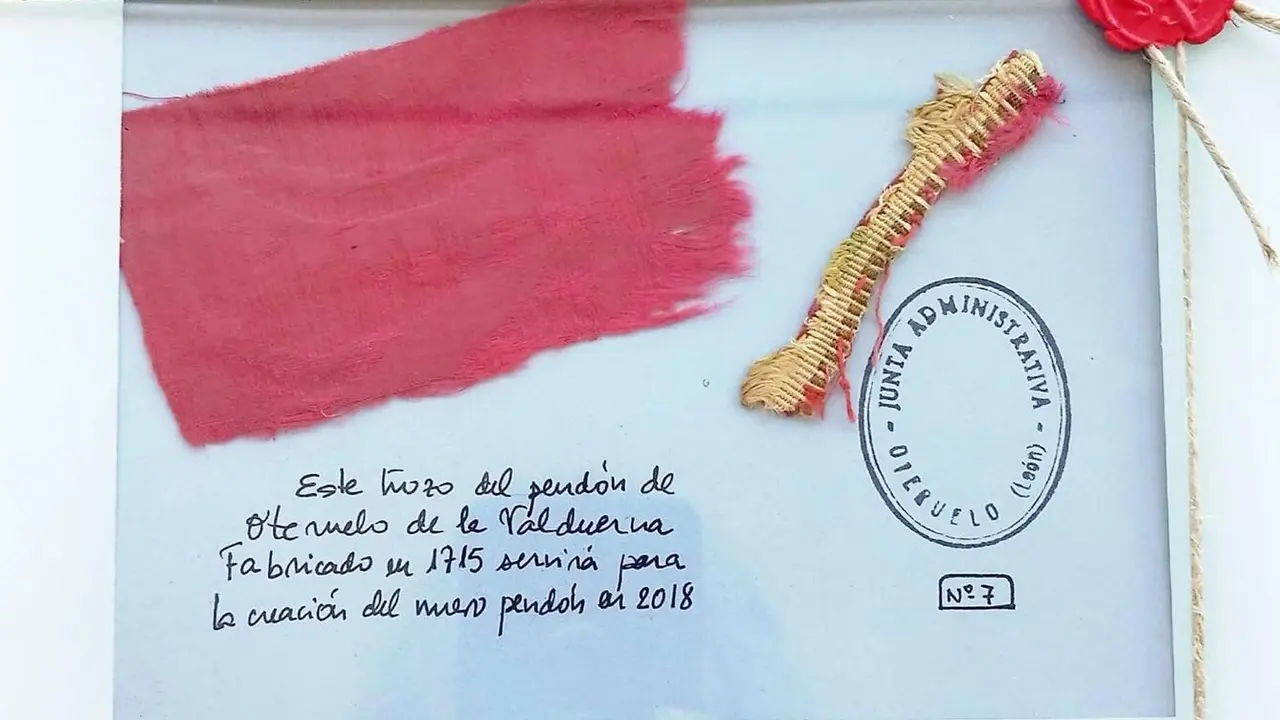 Este trozo del pendón de
Oteruelo de la Valduerna
Fabricado en 1715 servirá para
la creación del nuevo pendón en 2018
- JUNTA ADMINISTRATIVA -
OTERUELO (León)
Nº 7